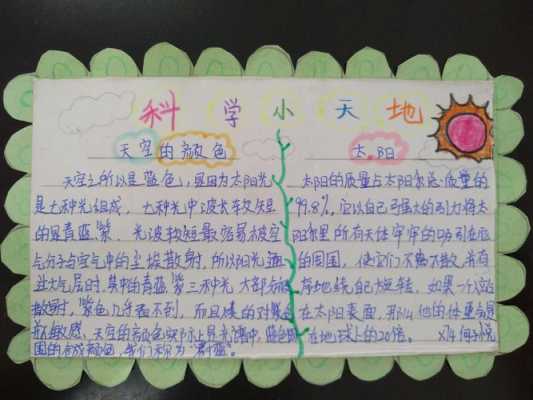 科学小天地
天空的颜色
天空之所以是蓝色,是因为太阳光
是七种光组成,七种光中波长较短
的是青蓝紫,光波较短最容易被空
气分子与空气中的尘埃散射,所以阳光
过大气层时,其中的青蓝紫三种光大部分
散射,紫色几乎看不到,而且
敏感,天空的颜色实际上是光谱中蓝色
围的合成颜色,我们称为"蔚蓝"。
太阳
太阳的质量占太阳系总质量的
99.8%,它以自己强大的引力将太
阳系里所有天体牢牢的吸引在
的周围,使它们不离不散,井有
地绕自己旋转,如果一个人站
在太阳表面,那么他的体重
在地球上的20倍。